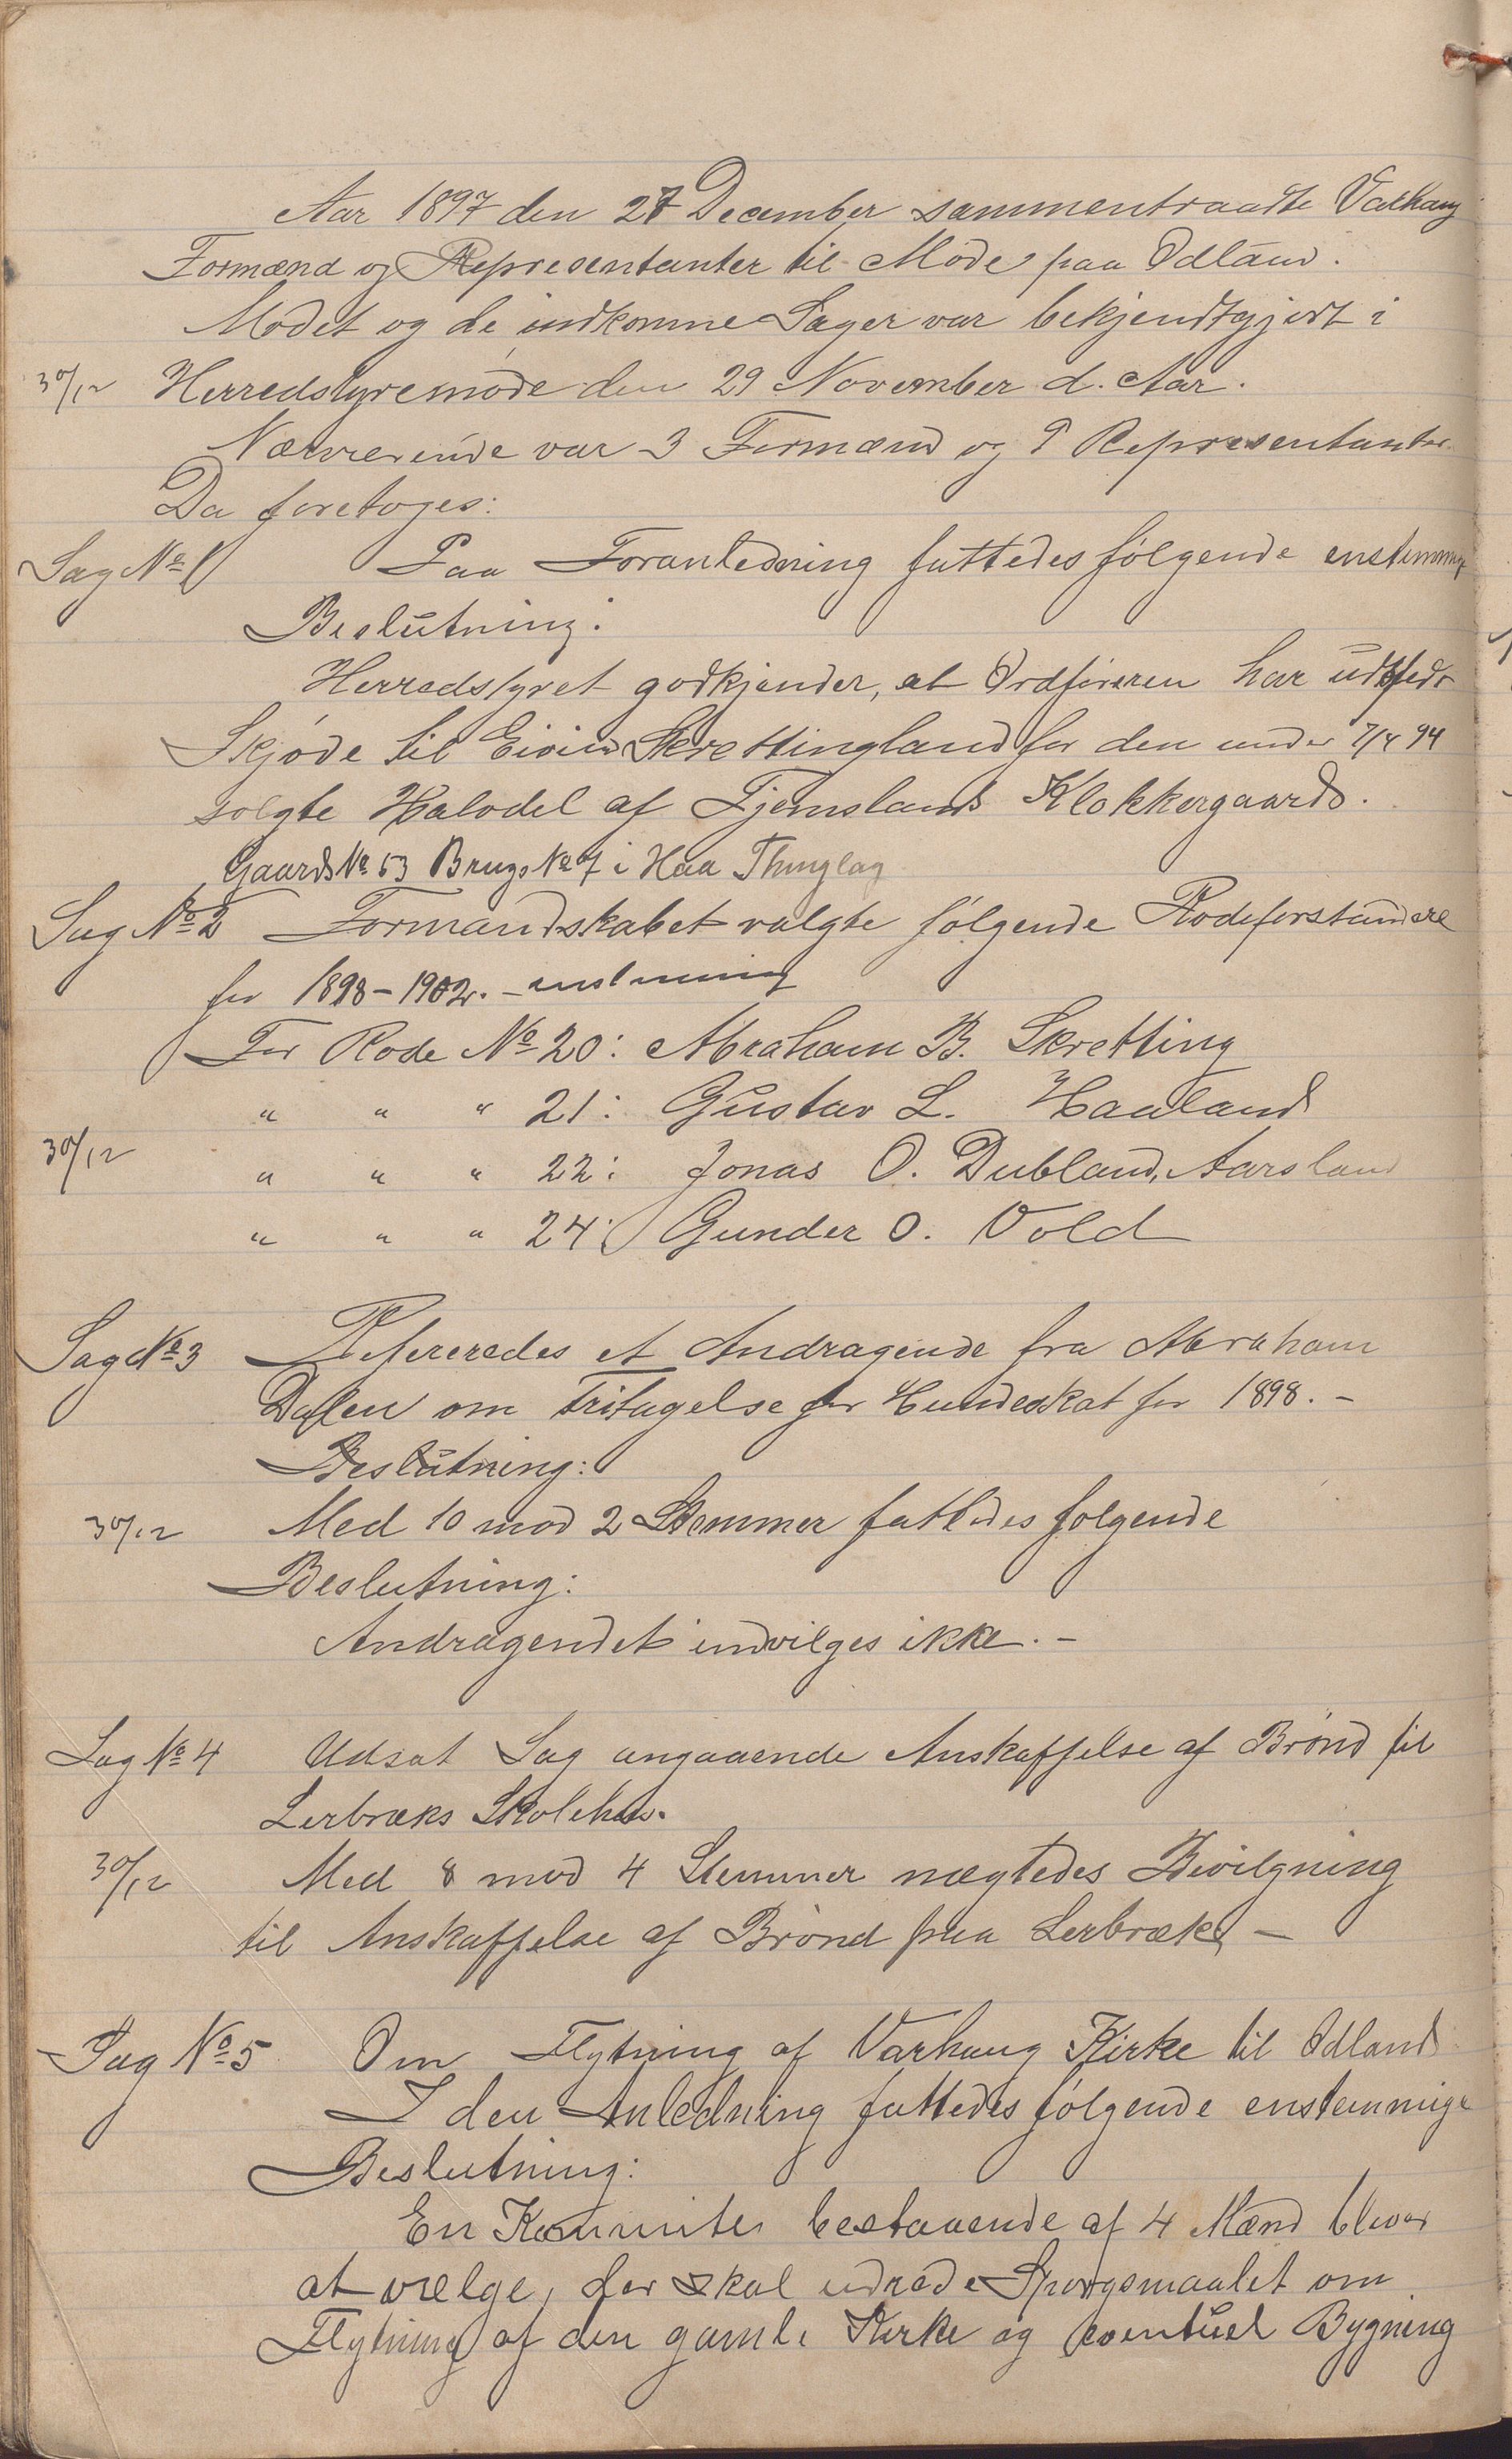 Aar 1897 den 27 December sammentraadte Varhaug
Formænd og Representanter til Møde paa Ødland.
Mødet og de indkomne Sager var bekjendtgjort i
30/12 Herredstyremøde den 29 November d. Aar.
Nærværende var 3 Formænd og 9 Representanter.
Da foretoges:
Sag No 1 Paa Foranledning fattedes følgende enstemmige
Beslutning:
Herredstyret godkjender, at Ordføreren har udstedt
Skjøde til Eivind Skrettingland for den under 7/4 94
solgte Halvdel af Tjemslands Klokkergaard.
Gaards No 53 Brugs No 7 i Haa Thinglag
Sag No 2 Formandskabet valgte følgende Rodeforstandere
for 1898-1902. - enstemmig
For Rode No 20: Abraham B. Skretting
" " " 21: Gustav L. Haaland
30/12
" " " 22: Jonas O. Dubland, Aarsland
" " " 24: Gunder O. Vold
Sag No 3 Refereredes et Andragende fra Abraham
Dalen om Fritagelse for Hundeskat for 1898. -
Beslutning:
30/12 Med 10 mod 2 Stemmer fattedes følgende
Beslutning:
Andragendet indvilges ikke. -
Sag No 4 Udsat Sag angaaende Anskaffelse af Brønd til
Lerbræks Skolehus.
30/12 Med 8 mod 4 Stemmer nægtedes Bevilgning
til Anskaffelse af Brønd paa Lerbræk -
Sag No 5 Om Flytning af Varhaug Kirke til Ødland
I den Anledning fattedes følgende enstemmige
Beslutning:
En Kommite bestaaende af 4 Mænd bliver
at vælge, der skal udrede Spørgsmaalet om
Flytning af den gamle Kirke og eventuel Bygning